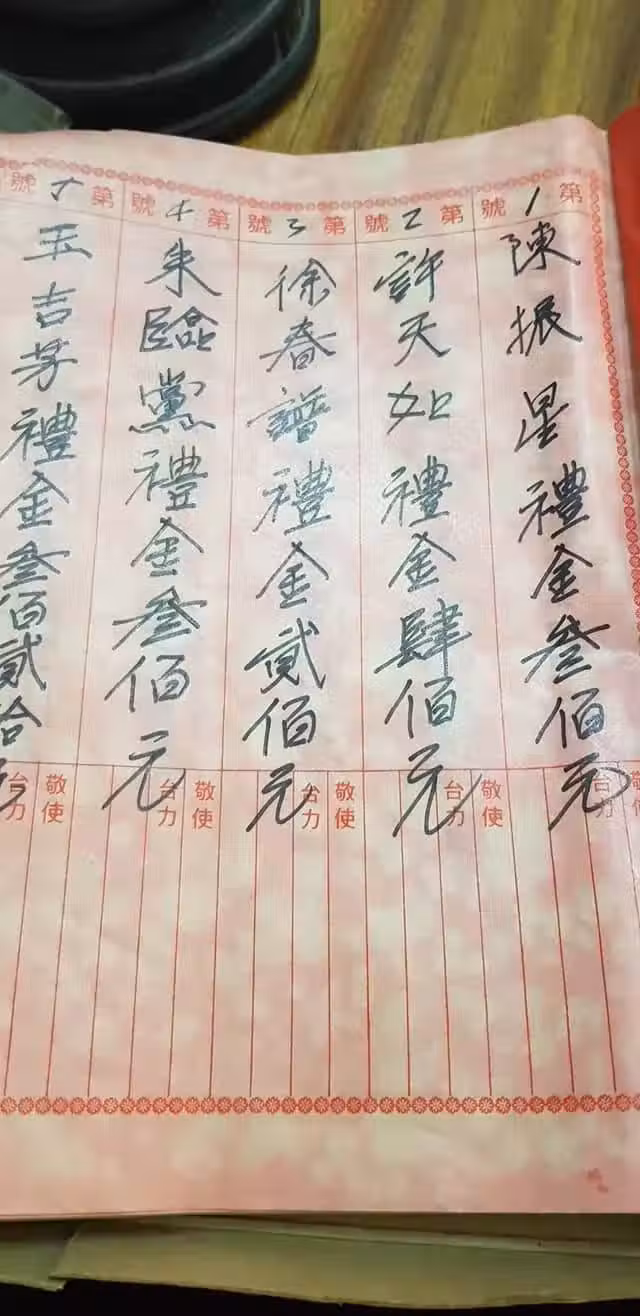 第1號
陳振星禮金叁佰元
敬使
台力
第2號
許天如禮金肆佰元
敬使
台力
第3號
徐春譜禮金貳佰元
敬使
台力
第4號
朱臨黨禮金叁佰元
敬使
台力
第5號
玉吉芳禮金叁佰貳拾元
敬使
台力